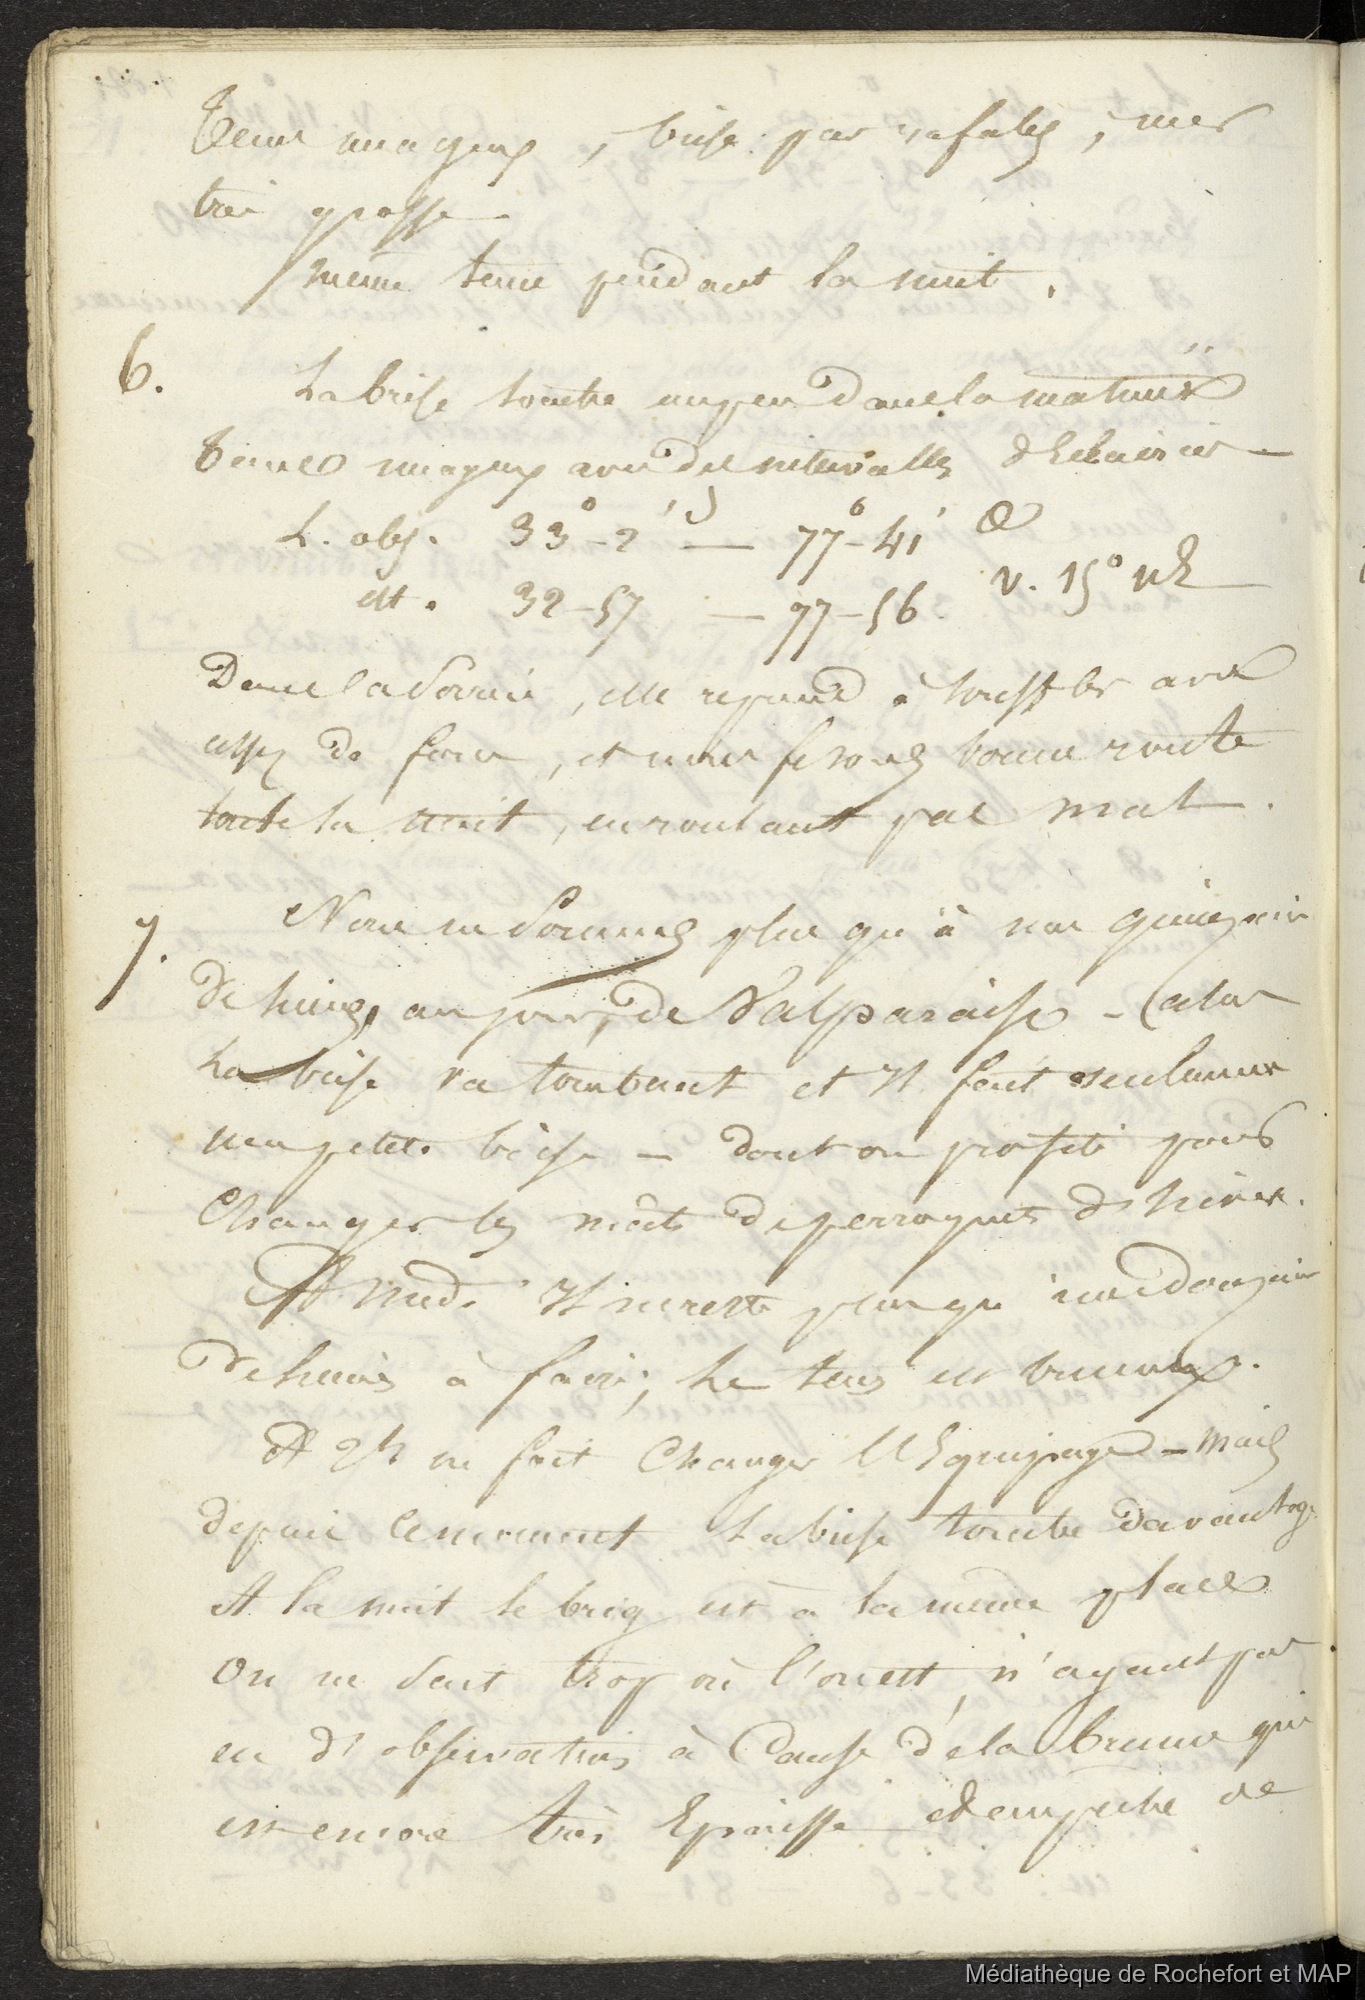 Tems nuageux, brise par rafales, mer
très grosse
même tems pendant la nuit.
6.
La brise tombe un peu dans la matinée
Tems nuageux avec des intervalles d'Eclaircie
L. obs. 33°-2' — 77°-41' O
est. 32-57 — 77-56. V. 15° NE
Dans la Soirée, elle reprend à souffler avec
assez de force, et nous fesons bonne route
toute la nuit, en roulant pas mal.
7.
Nous ne Sommes plus qu'à une quinzaine
de lieues, au jour, de Valparaiso - Calme
La brise va tombant et Il fait seulement
une petite brise - dont on profite pour
Changer les mâts de perroquets d'hiver.
A midi Il ne reste plus qu'une douzaine
de lieues à faire; Le tems est brumeux.
A 2h on fait Changer l'Equipage - Mais
depuis ce moment La brise tombe davantage
A la nuit le brig est à la même place
On ne sait trop où l'on est, n'ayant pas
eu d'observations à Cause de la brume qui
est encore très Epaisse et empêche de
Médiathèque de Rochefort et MAP